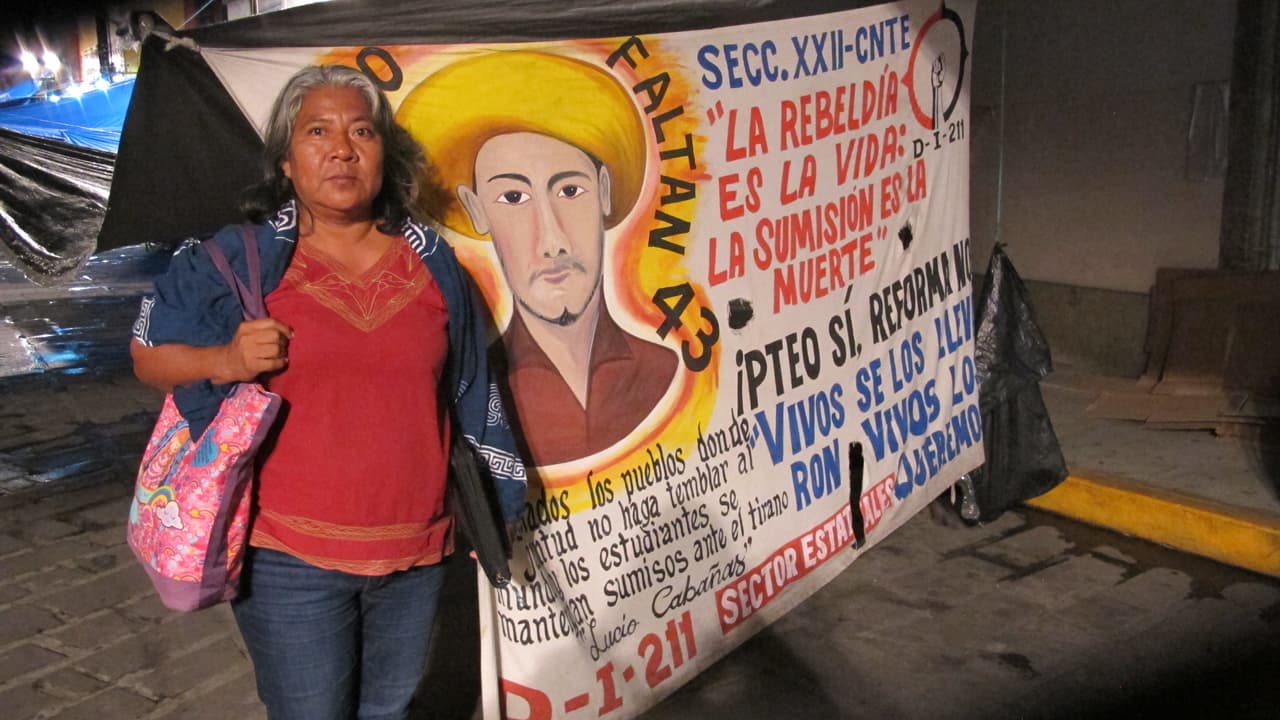 FALTAN 43
SECC. XXII-CNTE
"LA REBELDÍA
ES LA VIDA:
LA SUMISIÓN ES LA
MUERTE"
D-I-211
¡PTEO SÍ, REFORMA NO
"VIVOS SE LOS LLEV
RON VIVOS LO
QUEREMO
los pueblos donde
no haga temblar al
los estudiantes se
sumisos ante el tirano"
Lucio Cabañas
SECTOR ESTATALES
D-I-211